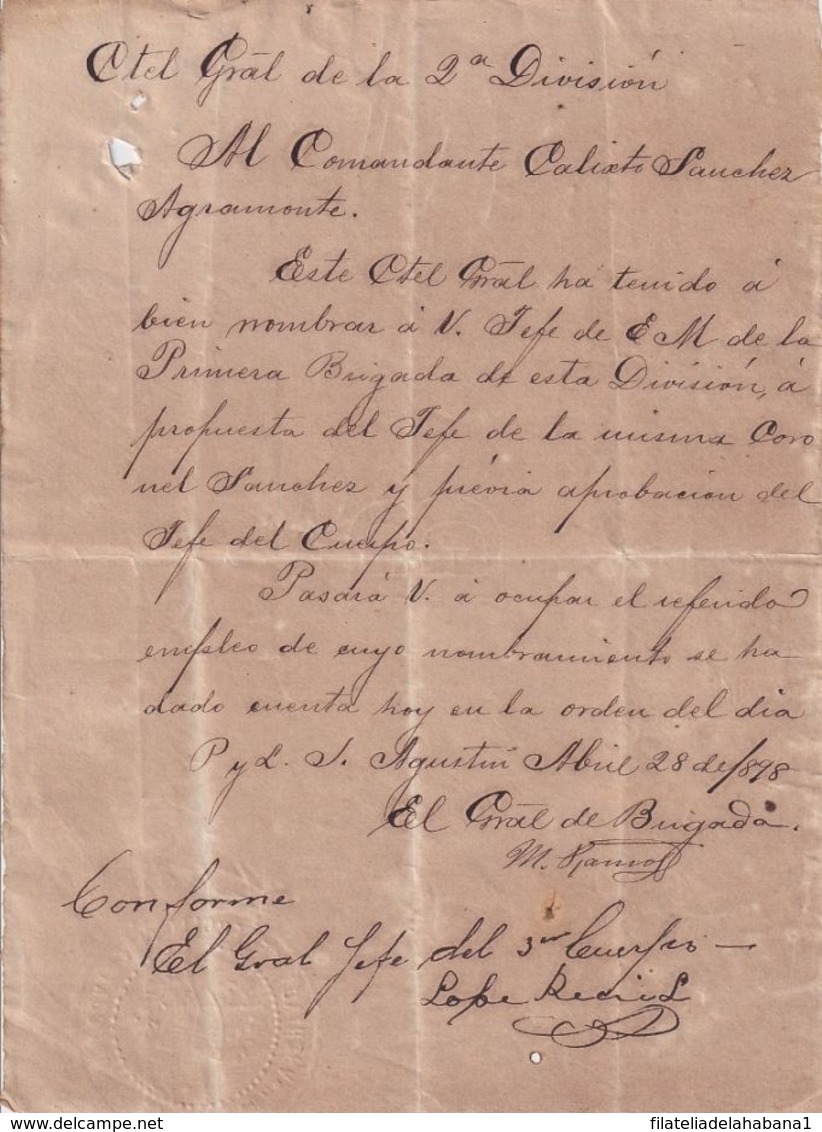 Ctel Grãl de la 2ª División
Al Comandante Calixto Sanchez
Agramonte.
Este Ctel Grãl ha tenido á
bien nombrar á V. Jefe de E M de la
Primera Brigada de esta División, á
propuesta del Jefe de la misma Coro
nel Sanchez y prévia aprobación del
Jefe del Cuerpo.
Pasará V. á ocupar el referido
empleo de cuyo nombramiento se ha
dado cuenta hoy en la orden del dia
P y L. S. Agustin Abril 28 de /898
El Grãl de Brigada.
M. Ramos
Conforme
El Gral Jefe del 3er Cuerpo —
Lope Recio L
delcampe.net
filateliadelahabana1